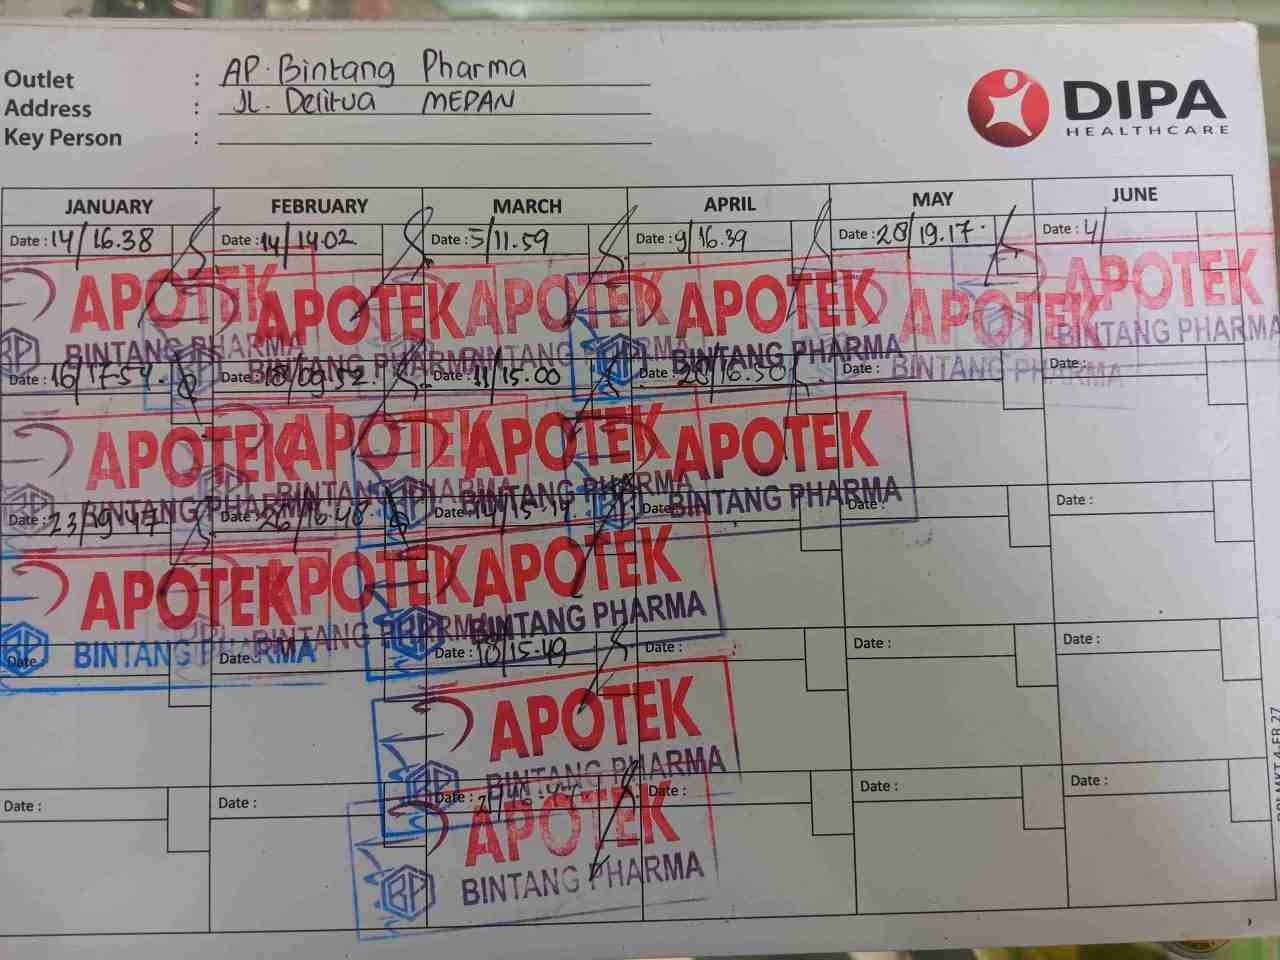 Outlet : AP. Bintang Pharma
Address : JL. Delitua MEDAN
Key Person :
DIPA
HEALTHCARE
JANUARY FEBRUARY MARCH APRIL MAY JUNE
Date : 14/16.38 Date : 14/14.02 Date : 5/11.59 Date : 9/16.39 Date : 28/19.17 Date : 4/
APOTEK APOTEK APOTEK APOTEK APOTEK APOTEK
BINTANG PHARMA BINTANG PHARMA BINTANG PHARMA BINTANG PHARMA BINTANG PHARMA BINTANG PHARMA
Date : 16/17.54 Date : 18/09.52 Date : 11/15.00 Date : 28/16.50 Date : Date :
APOTEK APOTEK APOTEK APOTEK
BINTANG PHARMA BINTANG PHARMA BINTANG PHARMA BINTANG PHARMA
Date : 23/19.47 Date : 26/16.48 Date : 14/15.14 Date : Date : Date :
APOTEK APOTEK APOTEK
BINTANG PHARMA BINTANG PHARMA BINTANG PHARMA
Date : Date : Date : 18/15.49 Date : Date : Date :
APOTEK
BINTANG PHARMA
Date : Date : Date : Date : Date : Date :
APOTEK
BINTANG PHARMA